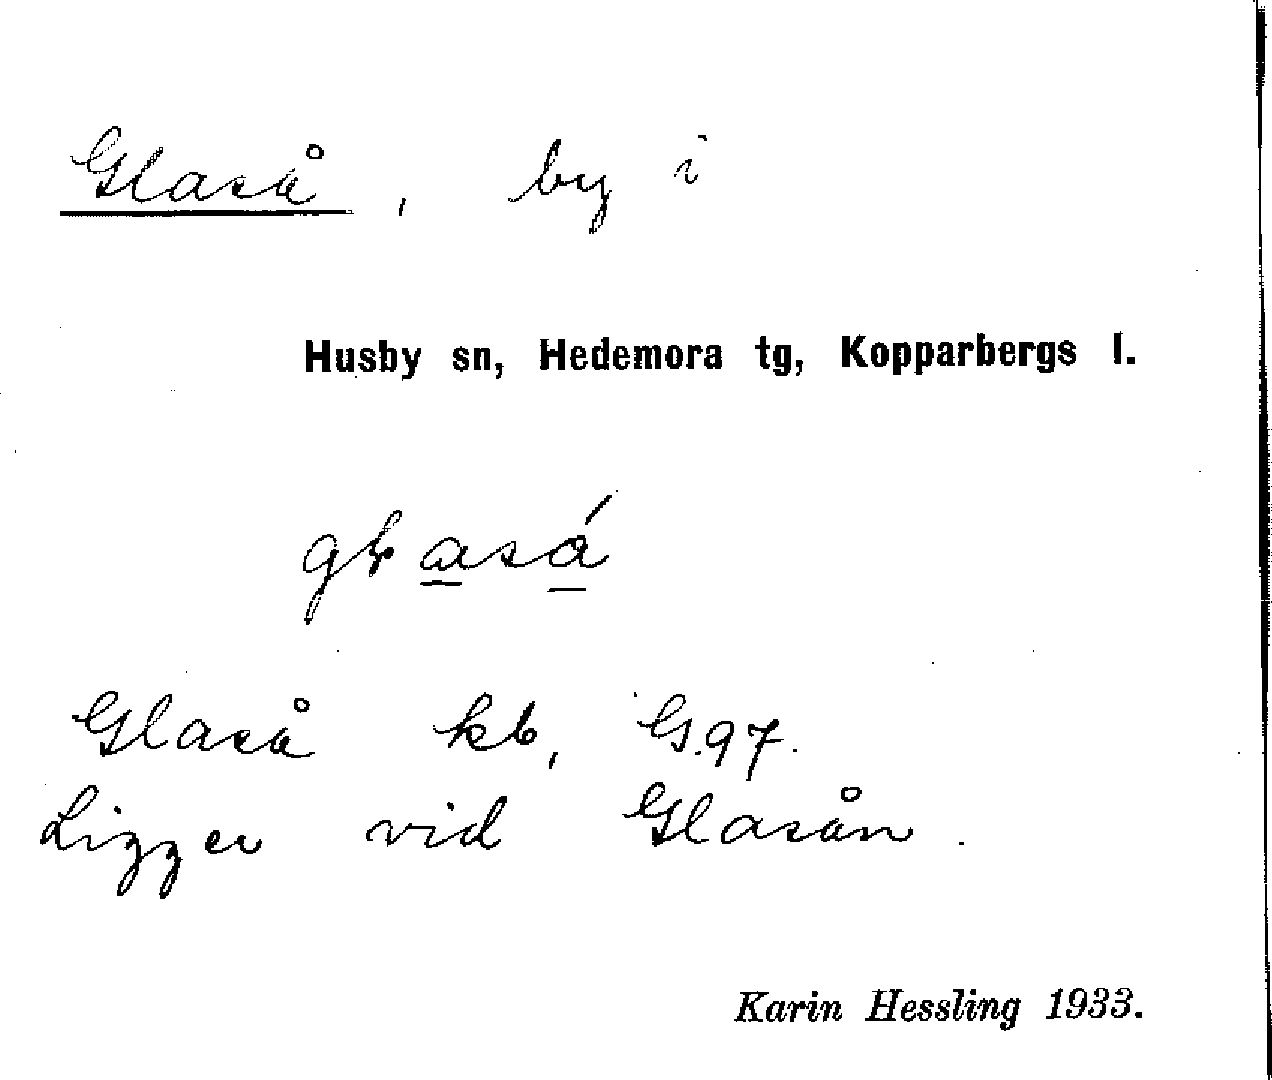 Glaså, by i
Husby sn, Hedemora tg, Kopparbergs l.
Glaså kb, G.97.
Ligger vid Glasån.
Karin Hessling 1933.